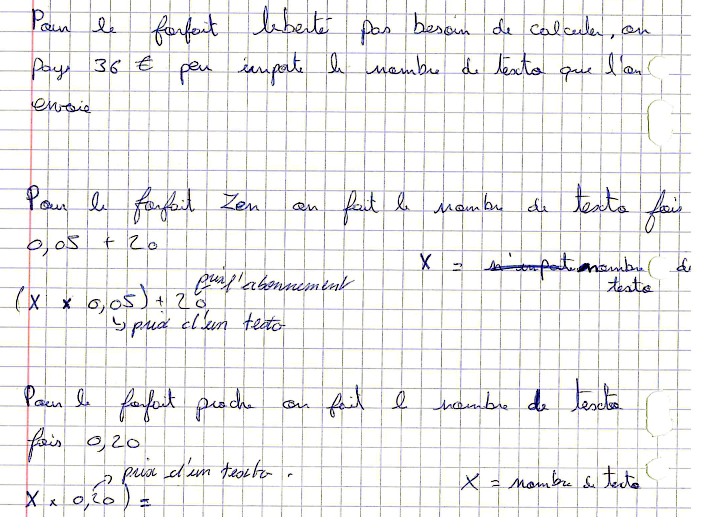 Pour le forfait liberté pas besoin de calculer, on
paye 36 € peu importe le nombre de texto que l'on
envoie
Pour le forfait Zen on fait le nombre de texto fois
0,05 + 20
X = n'importe nombre de
texto
prix l'abonnement
(X x 0,05) + 20
↳ prix d'un texto
Pour le forfait proche on fait le nombre de texto
fois 0,20
prix d'un texto.
X = nombre de texto
X x 0,20) =